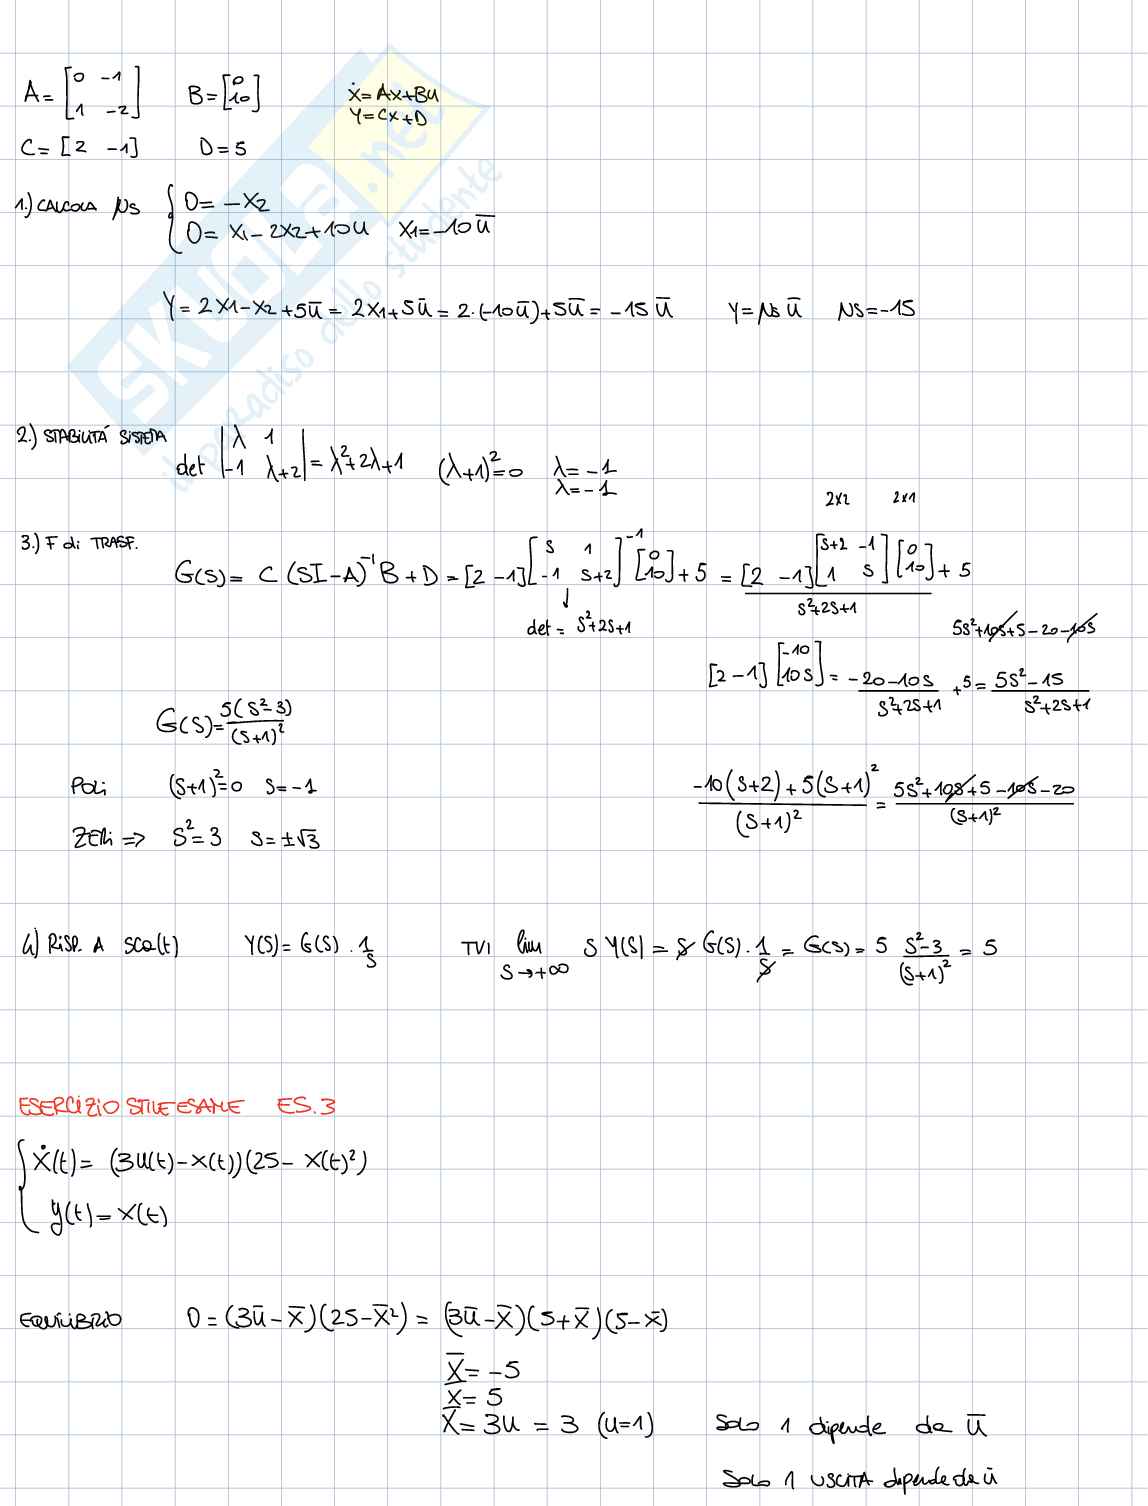 A= [0 -1 B= [0 ẋ= Ax+Bu
1 -2] 10] Y=Cx+D
C= [2 -1] D=5
1.) CALCOLA μs { 0= -x2
0= x1-2x2+10u x1=-10ū
Y= 2x1-x2+5ū= 2x1+5ū= 2·(-10ū)+5ū= -15ū Y=μs ū μs=-15
SKUOLA.net
il paradiso dello studente
2.) STABILITÁ SISTEMA
det |λ 1
-1 λ+2| = λ²+2λ+1 (λ+1)²=0 λ=-1
λ=-1
2x2 2x1
3.) F di TRASF.
G(s)= C(sI-A)⁻¹B+D= [2 -1] [s 1
-1 s+2]⁻¹ [0
10] +5 = [2 -1] [s+2 -1
1 s] [0
10] +5
s²+2s+1
↓
det= s²+2s+1
5s²+10s+5-20-10s
[2 -1] [-10
10s] = -20-10s
s²+2s+1 +5= 5s²-15
s²+2s+1
G(s)= 5(s²-3)
(s+1)²
POLi (s+1)²=0 s=-1
-10(s+2)+5(s+1)²
(s+1)² = 5s²+10s+5-10s-20
(s+1)²
ZERi => s²=3 s=±√3
4) RiSP. A sca(t) Y(s)= G(s)·1/s TVI lim s Y(s)= s G(s)·1/s= G(s)= 5 s²-3
(s+1)² = 5
s→+∞
ESERCiZiO STiLE ESAME ES.3
{ ẋ(t)= (3u(t)-x(t))(25-x(t)²)
y(t)=x(t)
EQUiLiBRiO 0=(3ū-x̄)(25-x̄²)= (3ū-x̄)(5+x̄)(5-x̄)
x̄=-5
x̄=5
x̄=3u = 3 (u=1) Solo 1 dipende da ū
Solo 1 USCITA dipende da ū